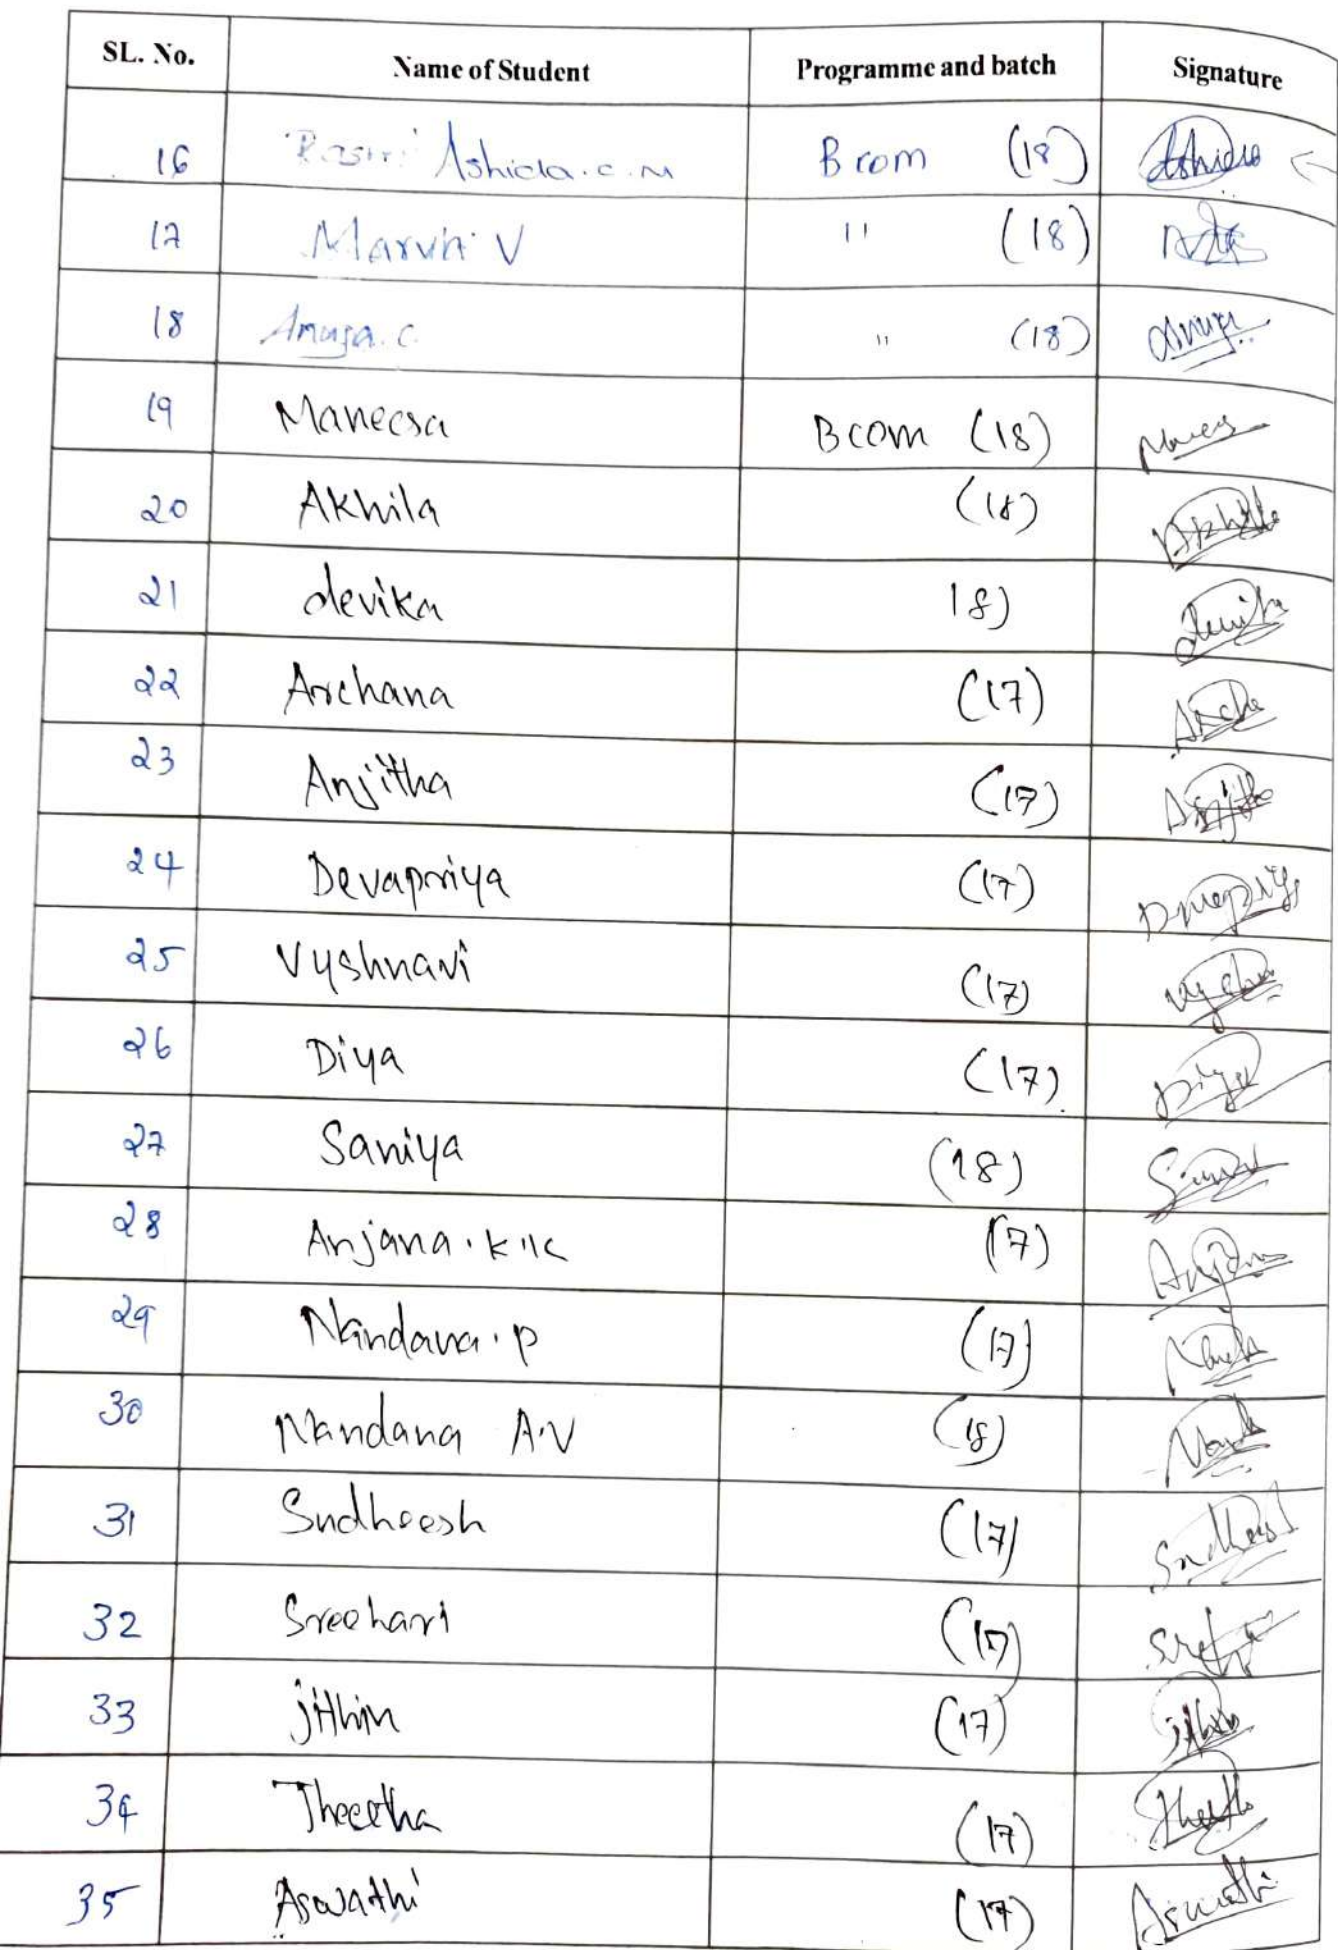 SL. No. Name of Student Programme and batch Signature
16 Ashida.c.M Bcom (18) Ashida
17 V " (18)
18 Anuja.c. " (18) Anuja
19 Maneesa Bcom (18)
20 Akhila (18) Akhila
21 devika 18) devika
22 Archana (17) Archa
23 Anjitha (17) Anjitha
24 Devapriya (17)
25 Vyshnavi (17)
26 Diya (17) Diya
27 Saniya (18)
28 Anjana.K.K (17) Anjana
29 Nandana.P (17)
30 Nandana A.V (18)
31 Sudheesh (17) Sudheesh
32 Sreehari (17)
33 jithin (17) jithin
34 Theertha (17)
35 Aswathi (17) Aswathi